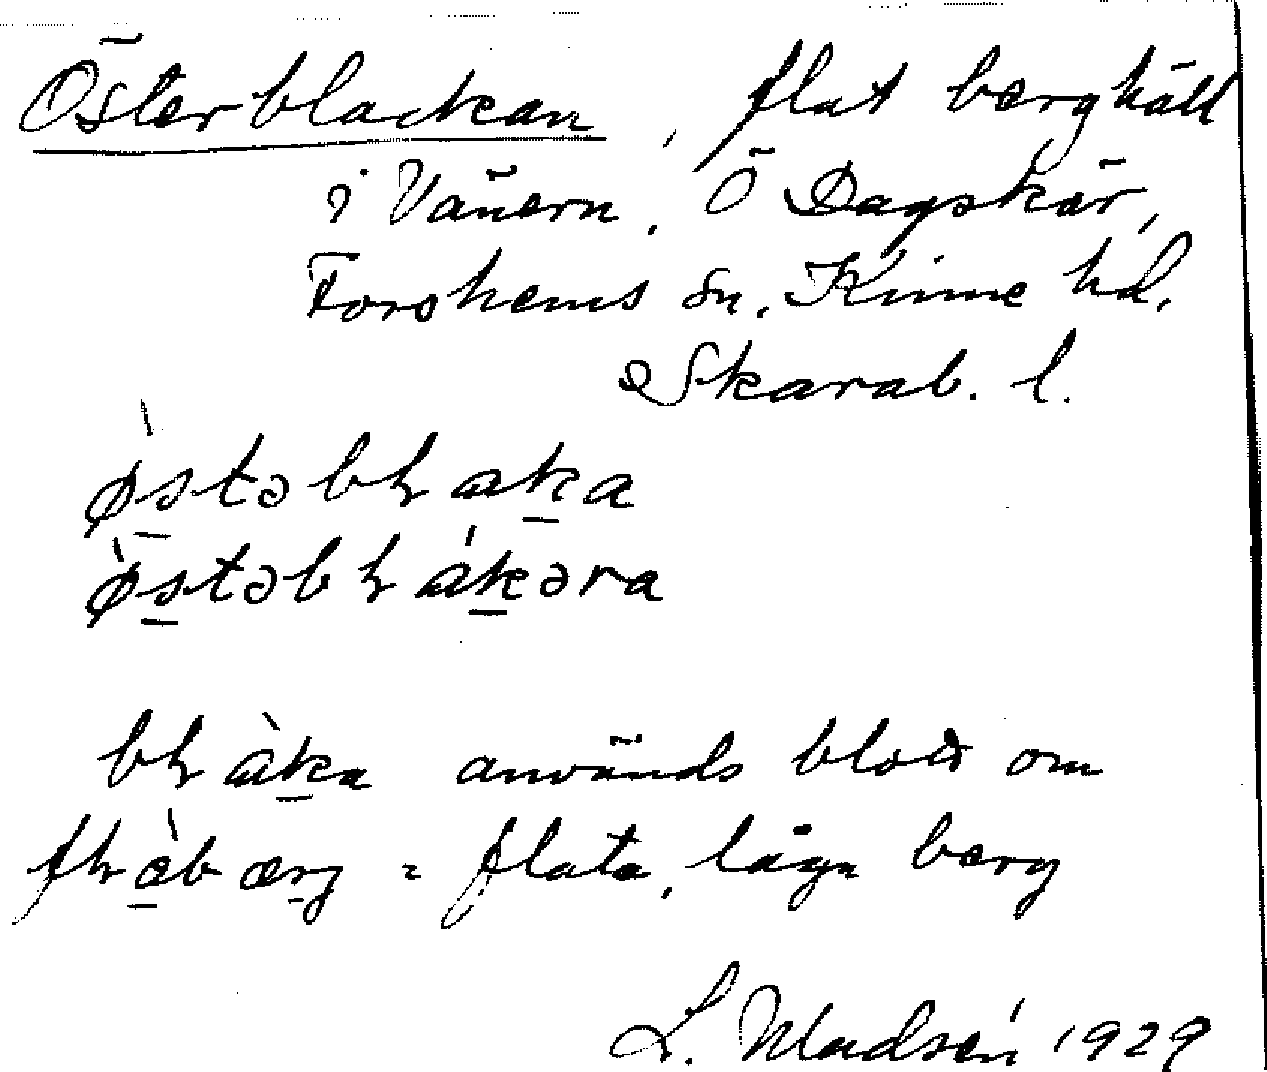 Österblackan, flat berghäll
i Vänern, Ö Dagskär,
Forshems sn. Kinne hd.
Skarab. l.
østəbɫaka
østəbɫákəra
bɫàka används blott om
fɫàbærg = flata, låga berg
L. Modsén 1929